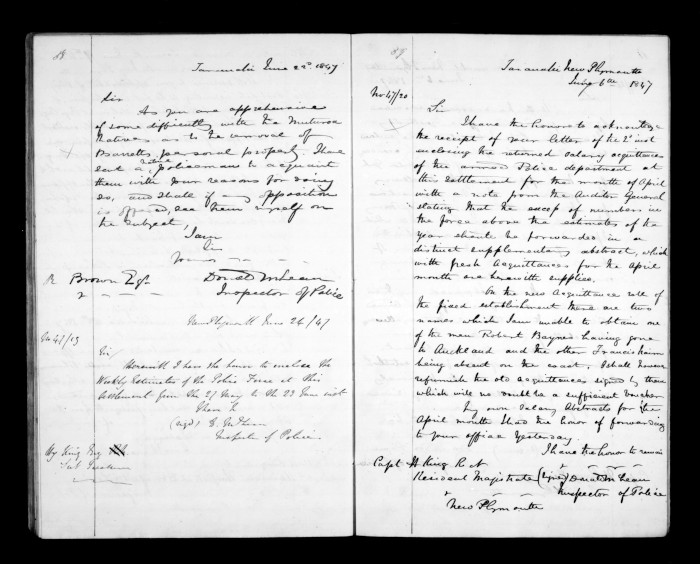 Taranaki June 22nd 1847
Sir
As you are apprehensive
of some difficulty with the
Natives as to the removal of
Barretts personal property I have
sent a native policeman to acquaint
them with your reasons for doing
so, and shall if any opposition
is offered, see them myself on
the subject,
I am
Sir
Yours
R Brown Esqr
Donald McLean
Inspector of Police
New Plymouth June 24/47
Sir,
Herewith I have the honor to enclose the
Weekly Estimates of the Police Force at this
Settlement from the 27 May to the 23 June inst
I have &
(sgd) D. McLean
Inspector of Police
Hy King Esq
Taranaki New Plymouth
July 6th 1847
No 47/20
Sir
I have the honor to acknowledge
the receipt of your letter of the 2d inst
enclosing the returned salary acquittances
of the armed Police department at
this settlement for the month of April
with a note from the Auditor General
stating that the excess of numbers in
the force above the estimates of the
year should be forwarded in a
distinct supplementary abstract, which
with fresh acquittances for the April
month are herewith supplied.
On the new acquittance roll of
the fixed establishment there are two
names which I am unable to obtain one
of the men Robert Baynes having gone
to Auckland and the other Francis
being absent on the coast, I shall however
refurnish the old acquittances signed by them
which will no doubt be a sufficient voucher
My own Salary Abstracts for the
April month I had the honor of forwarding
to your office Yesterday.
I have the honor to remain
Capt H King R.N
Resident Magistrate
New Plymouth
(Signed) Donald McLean
Inspector of Police